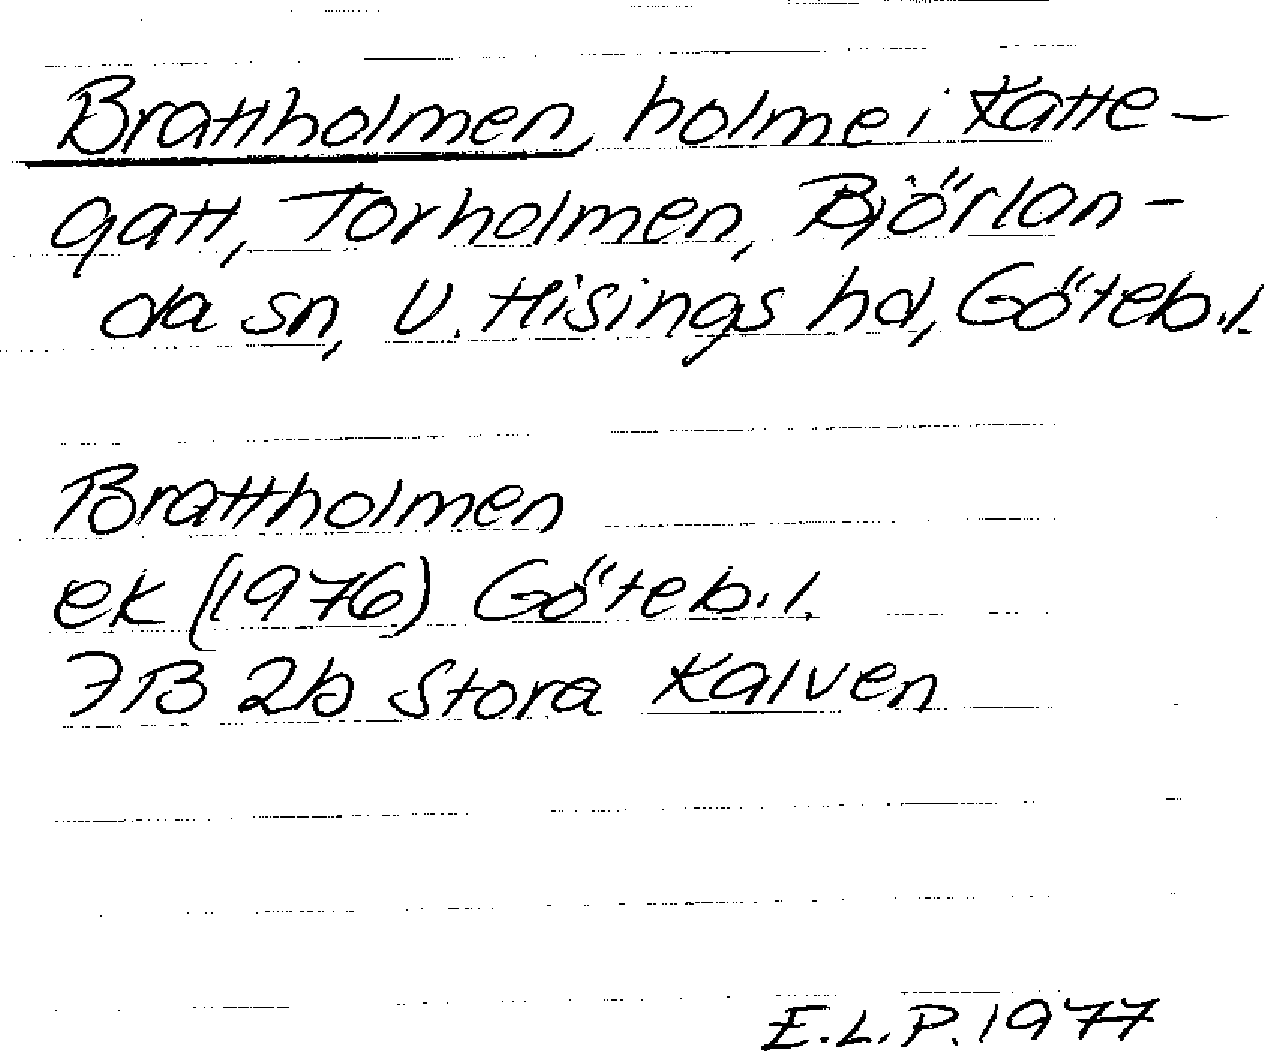 Brattholmen, holme i Katte-
gatt, Torholmen, Björlan-
da sn, V. Hisings hd, Göteb.l.
Brattholmen
ek (1976) Göteb.l.
7B 2b Stora Kalven
E.L.P. 1977